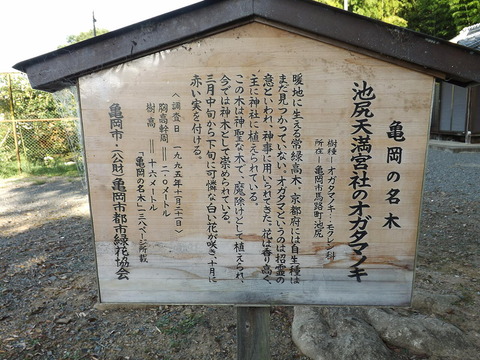 亀岡の名木
池尻天満宮社のオガタマノキ
樹種－オガタマノキ…モクレン科
所在－亀岡市馬路町池尻
暖地に生える常緑高木。京都府には自生種は
まだ見つかっていない。オガタマというのは招霊の
意といわれ、神事に用いられてきた。花は香り高く、
主に神社に植えられている。
この木は神聖な木で、魔除けとして植えられ、
今では神木として崇められている。
三月中旬から下旬に可憐な白い花が咲き、十月に
赤い実を付ける。
〈調査日 一九九五年十月二十二日〉
胸高幹周＝＝二・〇メートル
樹高＝＝＝十六メートル
「亀岡の名木」一三ページ所載
亀岡市・(公財)亀岡市都市緑花協会